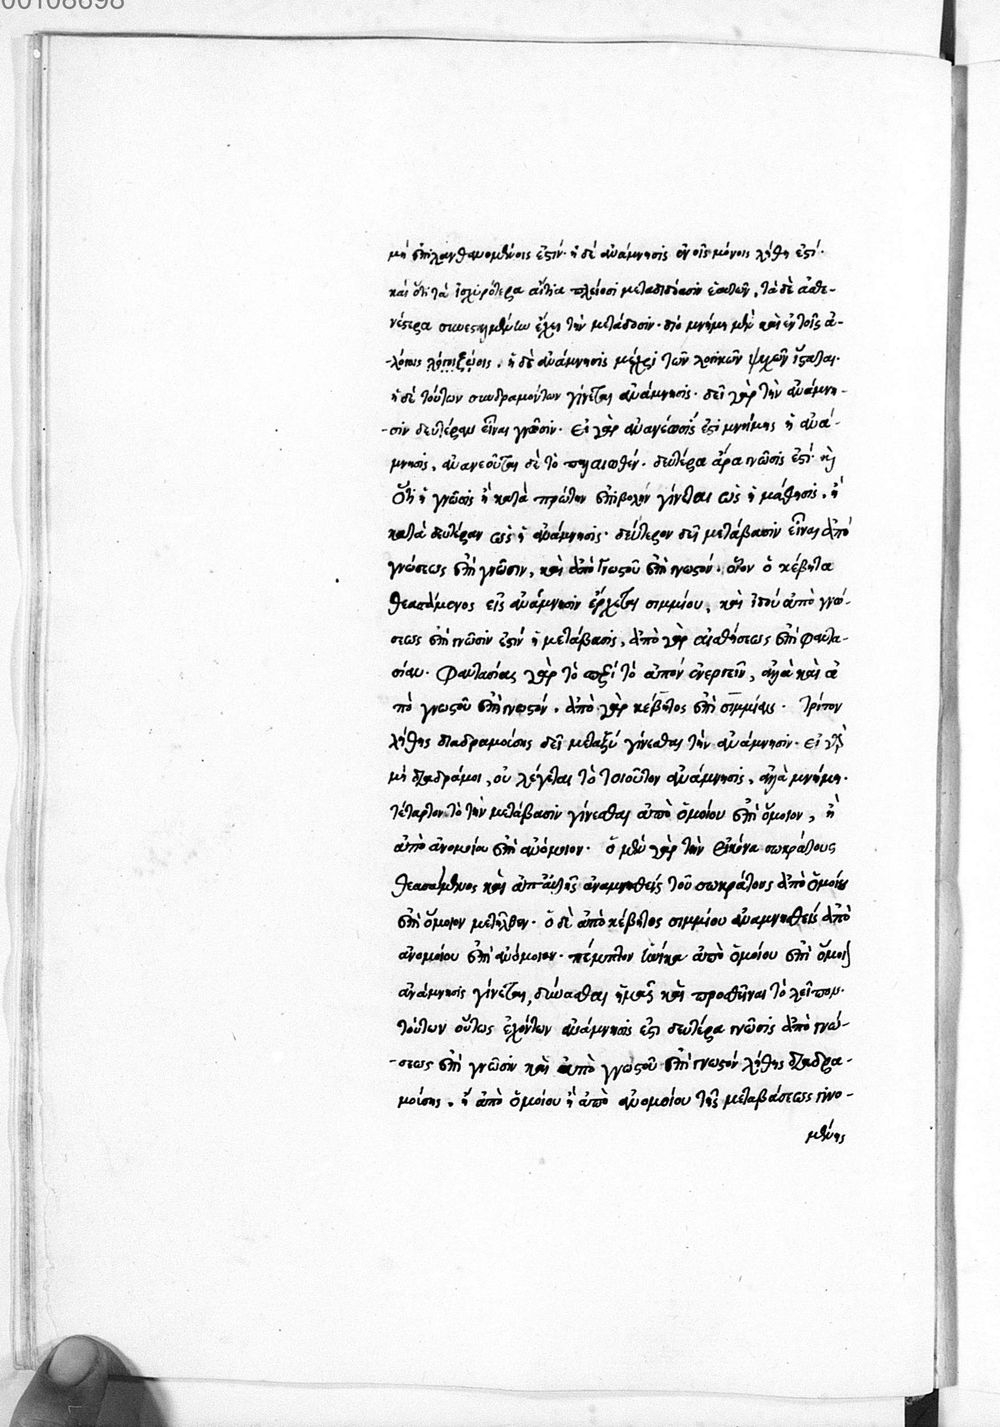 00108698
μὴ ἐπιλανθανομένοις ἐστίν· ἡ δὲ ἀνάμνησις ἐν οἷς μόνοις λήθη ἐστί·
καὶ ὅτι τὰ ἰσχυρότερα αἴτια πλείοσι μεταδιδόασιν ἑαυτῶν, τὰ δὲ ἀσθε-
νέστερα συνεσταλμένην ἔχει τὴν μετάδοσιν· διὸ μνήμη μὲν καὶ ἐν τοῖς ἀ-
-λόγοις ἡ δὲ ἀνάμνησις μέχρι τῶν λογικῶν ψυχῶν ἵσταται·
ἡ δὲ τούτων συνδραμόντων γίνεται ἀνάμνησις· δεῖ γὰρ τὴν ἀνάμνη-
-σιν δευτέραν εἶναι γνῶσιν· εἰ γὰρ ἀνανέωσίς ἐστι μνήμης ἡ ἀνά-
μνησις, ἀνανεοῦται δὲ τὸ παλαιωθέν· δευτέρα ἄρα γνῶσις ἐστί· καὶ
ὅτι ἡ γνῶσις ἢ κατὰ πρώτην ἐπιβολὴν γίνεται ὡς ἡ μάθησις, ἢ
κατὰ δευτέραν ὡς ἡ ἀνάμνησις· δεύτερον δεῖ μετάβασιν εἶναι ἀπὸ
γνώσεως ἐπὶ γνῶσιν, καὶ ἀπὸ γνωστοῦ ἐπὶ γνωστόν· οἷον ὁ κέβητα
θεασάμενος εἰς ἀνάμνησιν ἔρχεται σιμμίου, καὶ ἰδοὺ ἀπὸ γνώ-
σεως ἐπὶ γνῶσίν ἐστιν ἡ μετάβασις, ἀπὸ γὰρ αἰσθήσεως ἐπὶ φαντα-
σίαν· φαντασίας γὰρ τὸ περὶ τὸ ἀπὸν ἐνεργεῖν, ἀλλὰ καὶ ἀ
πὸ γνωστοῦ ἐπὶ γνωστόν· ἀπὸ γὰρ κέβητος ἐπὶ σιμμίαν· τρίτον
λήθης διαδραμούσης δεῖ μεταξὺ γίνεσθαι τὴν ἀνάμνησιν· εἰ γὰρ
μὴ διαδράμοι, οὐ λέγεται τὸ τοιοῦτον ἀνάμνησις, ἀλλὰ μνήμη·
τέταρτον τὸ τὴν μετάβασιν γίνεσθαι ἀπὸ ὁμοίου ἐπὶ ὅμοιον, ἢ
ἀπὸ ἀνομοίου ἐπὶ ἀνόμοιον· ὁ μὲν γὰρ τὴν εἰκόνα σωκράτους
θεασάμενος καὶ ἀπ' αὐτῆς ἀναμνησθεὶς τοῦ σωκράτους ἀπὸ ὁμοίου
ἐπὶ ὅμοιον μετῆλθεν· ὁ δὲ ἀπὸ κέβητος σιμμίου ἀναμνησθεὶς ἀπὸ
ἀνομοίου ἐπὶ ἀνόμοιον· πέμπτον ἡνίκα ἀπὸ ὁμοίου ἐπὶ ὅμοιον
ἀνάμνησις γίνεται, δύνασθαι ἡμᾶς καὶ προσθεῖναι τὸ λεῖπον·
τούτων οὕτως ἐχόντων ἀνάμνησις ἐστι δευτέρα γνῶσις ἀπὸ γνώ-
-σεως ἐπὶ γνῶσιν καὶ ἀπὸ γνωστοῦ ἐπὶ γνωστὸν λήθης διαδρα-
μούσης, ἢ ἀπὸ ὁμοίου ἢ ἀπὸ ἀνομοίου τῆς μεταβάσεως γινο-
μένης